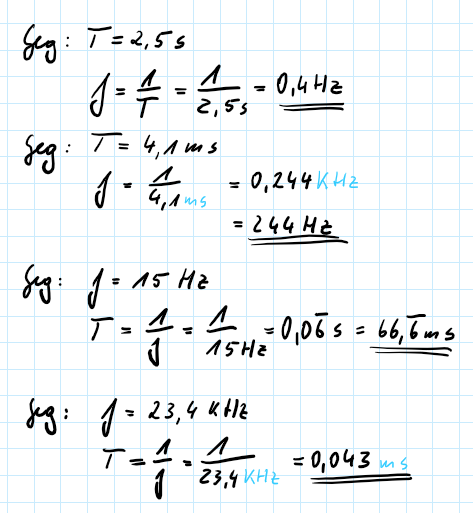 geg: T = 2,5 s
f = 1/T = 1/2,5s = 0,4 Hz
geg: T = 4,1 ms
f = 1/4,1ms = 0,244 KHz
= 244 Hz
geg: f = 15 Hz
T = 1/f = 1/15Hz = 0,06̅ s = 66,6̅ ms
geg: f = 23,4 KHz
T = 1/f = 1/23,4 KHz = 0,043 ms